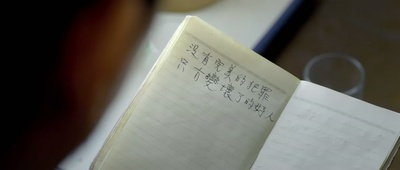 沒有完美的犯罪
只有變壞了的好人